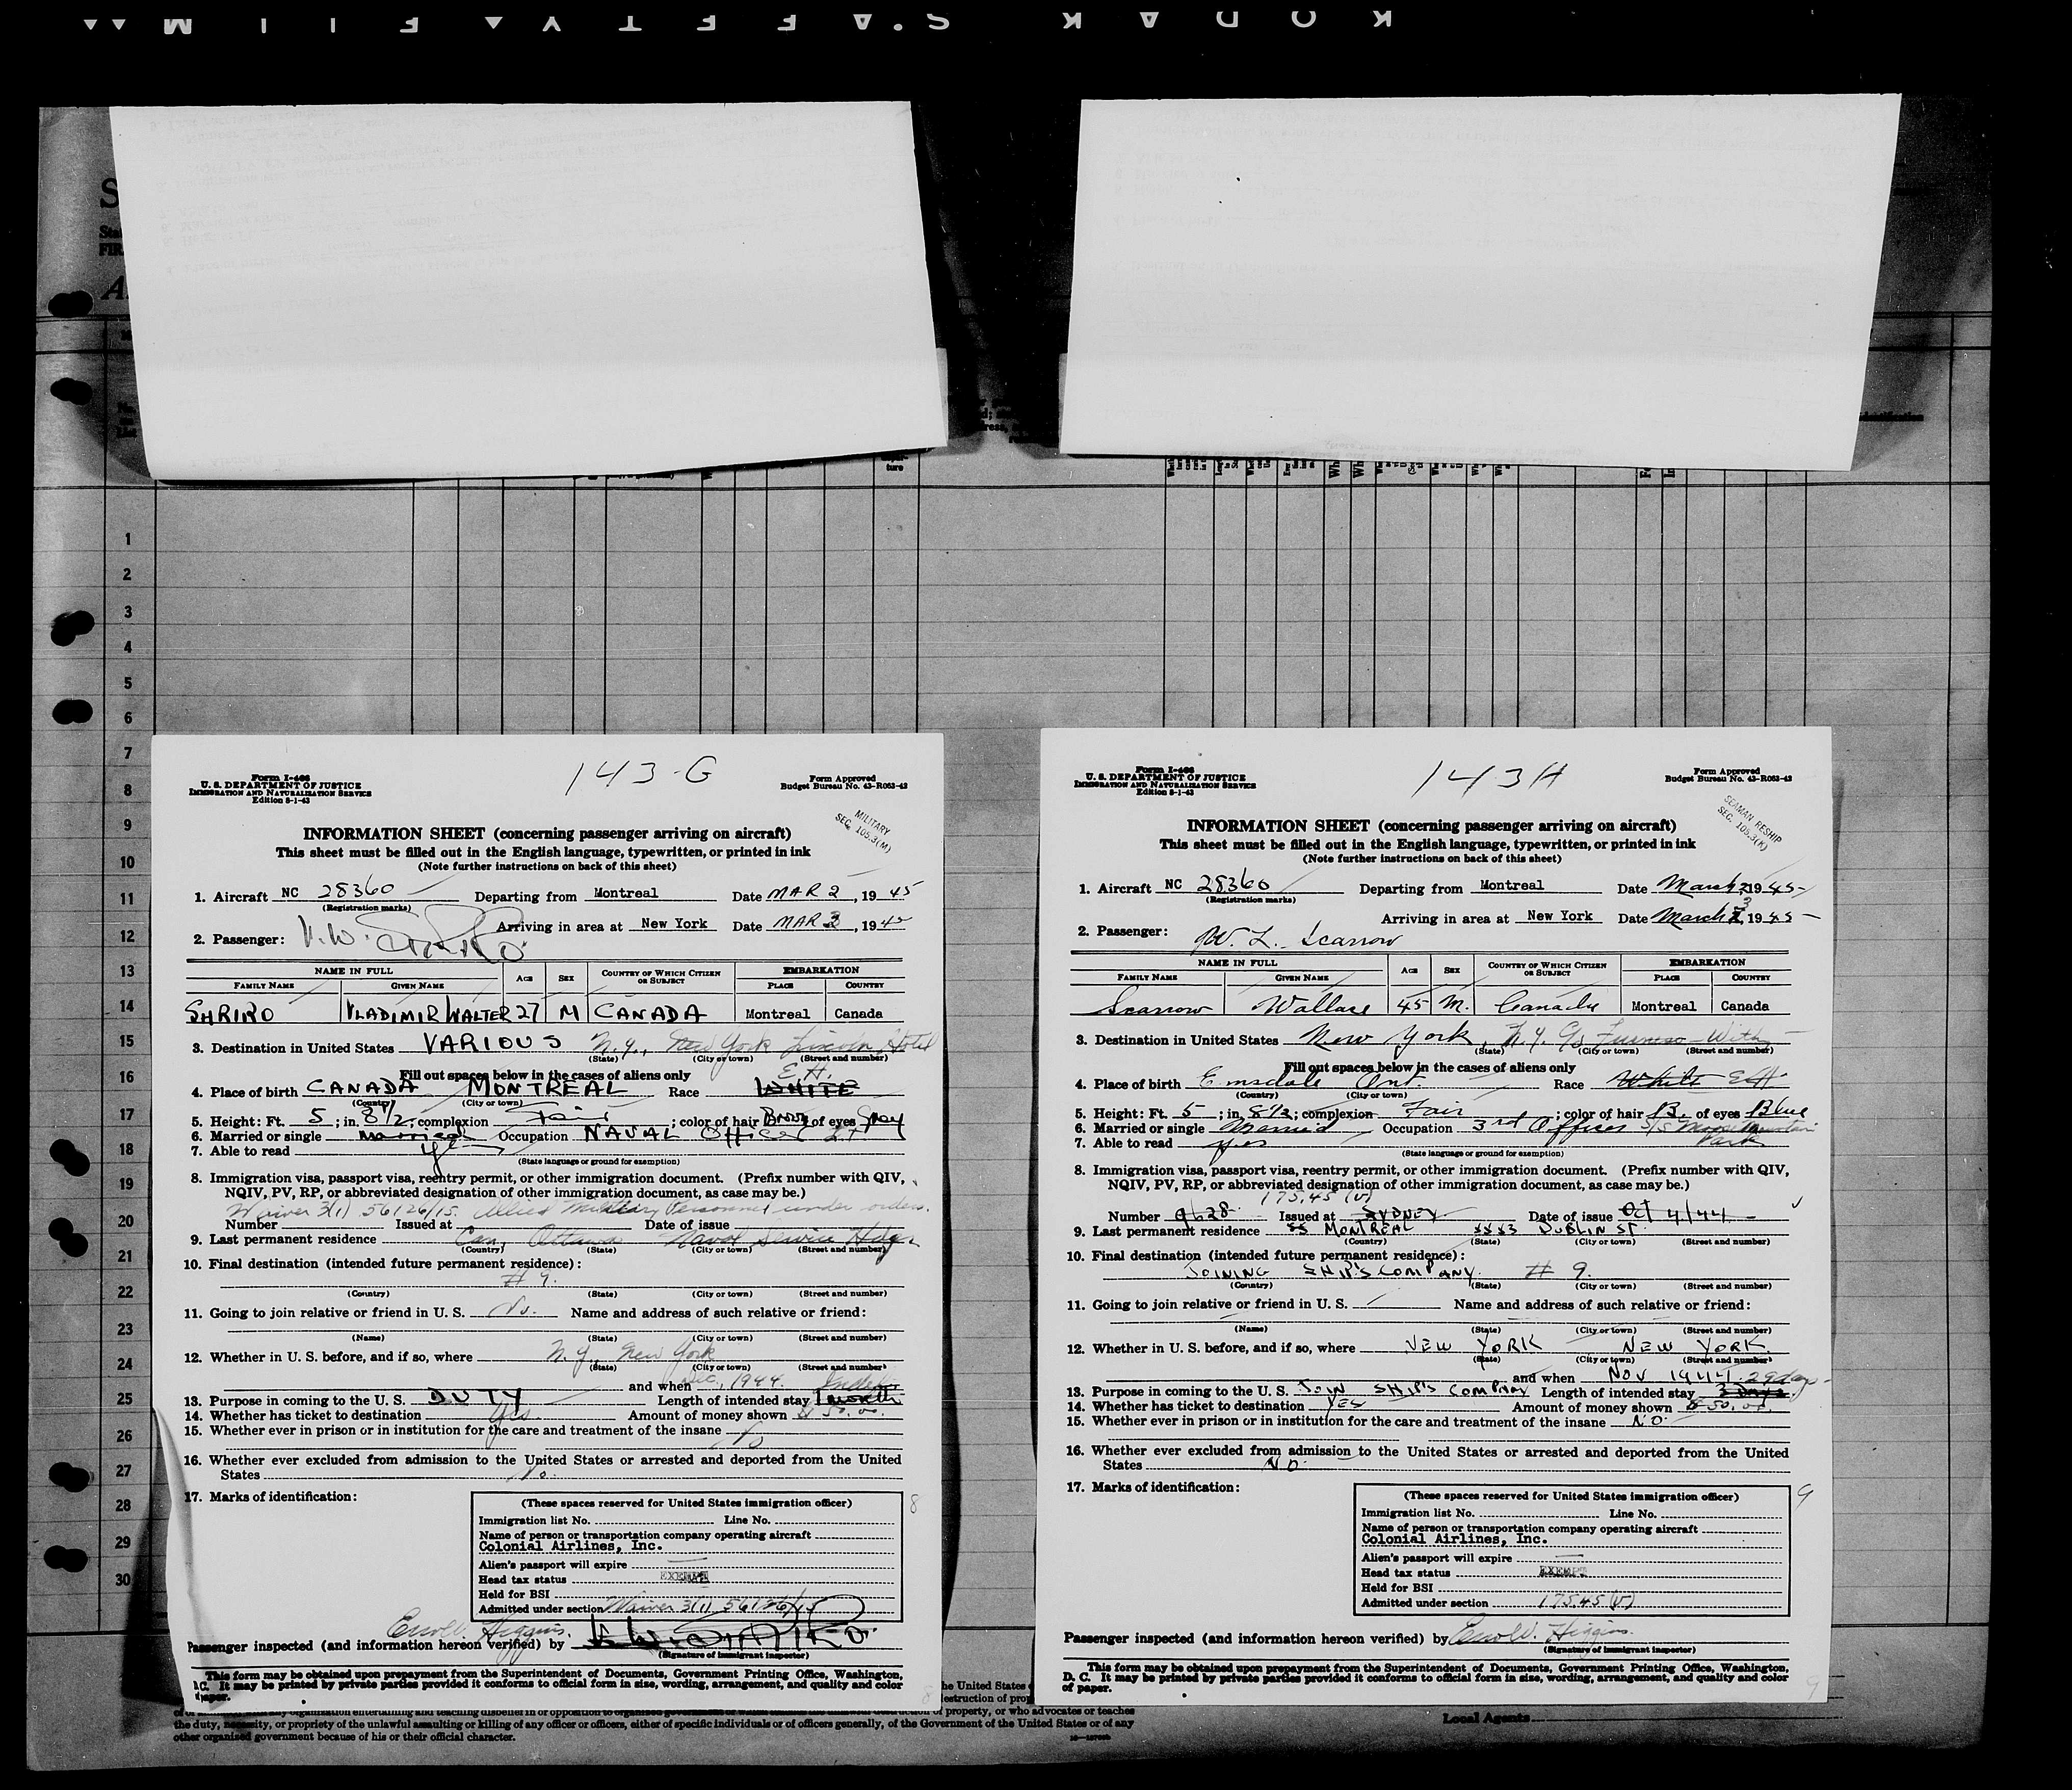 KODAK SAFETY FILM
1
2
3
4
5
6
7
8
9
10
11
12
13
14
15
16
17
18
19
20
21
22
23
24
25
26
27
28
29
30
143-G
Form I-466
U. S. DEPARTMENT OF JUSTICE
IMMIGRATION AND NATURALIZATION SERVICE
Edition 8-1-43
Form Approved
Budget Bureau No. 43-R053-42
MILITARY
SEC. 105.3(M)
INFORMATION SHEET (concerning passenger arriving on aircraft)
This sheet must be filled out in the English language, typewritten, or printed in ink
(Note further instructions on back of this sheet)
1. Aircraft NC 28360 Departing from Montreal Date MAR 2, 1945
(Registration marks)
Arriving in area at New York Date MAR 3, 1945
2. Passenger: V. W. Shriro
NAME IN FULL AGE SEX COUNTRY OF WHICH CITIZEN OR SUBJECT EMBARKATION
FAMILY NAME GIVEN NAME PLACE COUNTRY
SHRIRO VLADIMIR WALTER 27 M CANADA Montreal Canada
3. Destination in United States VARIOUS N.Y., New York Lincoln Hotel
(State) (City or town) (Street and number)
Fill out spaces below in the cases of aliens only
E.H.
4. Place of birth CANADA MONTREAL Race WHITE
(Country) (City or town)
5. Height: Ft. 5; in. 8 1/2; complexion Fair; color of hair Brown of eyes Gray
6. Married or single Married Occupation NAVAL Officer Lt
7. Able to read yes
(State language or ground for exemption)
8. Immigration visa, passport visa, reentry permit, or other immigration document. (Prefix number with QIV,
NQIV, PV, RP, or abbreviated designation of other immigration document, as case may be.)
Waiver 3(1) 56126/15. Allied Military Personnel under orders.
Number Issued at Date of issue
9. Last permanent residence Can. Ottawa Naval Service Hdqr
(Country) (State) (City or town) (Street and number)
10. Final destination (intended future permanent residence):
# 9.
(Country) (State) (City or town) (Street and number)
11. Going to join relative or friend in U. S. No. Name and address of such relative or friend:
(Name) (State) (City or town) (Street and number)
12. Whether in U. S. before, and if so, where N.Y., New York
(State) (City or town) (Street and number)
and when Dec. 1944.
13. Purpose in coming to the U. S. DUTY Length of intended stay 1 month
14. Whether has ticket to destination Yes. Amount of money shown $ 50.00.
15. Whether ever in prison or in institution for the care and treatment of the insane No
16. Whether ever excluded from admission to the United States or arrested and deported from the United
States No.
17. Marks of identification:
(These spaces reserved for United States immigration officer)
8
Immigration list No. Line No.
Name of person or transportation company operating aircraft
Colonial Airlines, Inc.
Alien's passport will expire
Head tax status EXEMPT
Held for BSI
Admitted under section Waiver 3(1) 56126/15
Errol W. Higgins.
Passenger inspected (and information hereon verified) by
(Signature of immigrant inspector)
This form may be obtained upon prepayment from the Superintendent of Documents, Government Printing Office, Washington,
D. C. It may be printed by private parties provided it conforms to official form in size, wording, arrangement, and quality and color
of paper.
8
143H
Form I-466
U. S. DEPARTMENT OF JUSTICE
IMMIGRATION AND NATURALIZATION SERVICE
Edition 8-1-43
Form Approved
Budget Bureau No. 43-R053-42
SEAMAN RESHIP
SEC. 105.3(K)
INFORMATION SHEET (concerning passenger arriving on aircraft)
This sheet must be filled out in the English language, typewritten, or printed in ink
(Note further instructions on back of this sheet)
1. Aircraft NC 28360 Departing from Montreal Date March 2, 1945
(Registration marks)
Arriving in area at New York Date March 3, 1945
2. Passenger: W. L. Scarrow
NAME IN FULL AGE SEX COUNTRY OF WHICH CITIZEN OR SUBJECT EMBARKATION
FAMILY NAME GIVEN NAME PLACE COUNTRY
Scarrow Wallace 45 M. Canada Montreal Canada
3. Destination in United States New York, N.Y. c/o Furness-Withy
(State) (City or town) (Street and number)
Fill out spaces below in the cases of aliens only
4. Place of birth Emsdale Ont. Race White EH
(Country) (City or town)
5. Height: Ft. 5; in. 8 1/2; complexion Fair; color of hair B. of eyes Blue
6. Married or single Married Occupation 3rd Officer S/S Moose Mountain
Park
7. Able to read yes
(State language or ground for exemption)
8. Immigration visa, passport visa, reentry permit, or other immigration document. (Prefix number with QIV,
NQIV, PV, RP, or abbreviated designation of other immigration document, as case may be.)
175.45 (v)
Number 9628 Issued at SYDNEY Date of issue Oct 4/44
9. Last permanent residence MONTREAL DUBLIN ST.
(Country) (State) (City or town) (Street and number)
10. Final destination (intended future permanent residence):
JOINING SHIP'S COMPANY. # 9.
(Country) (State) (City or town) (Street and number)
11. Going to join relative or friend in U. S. Name and address of such relative or friend:
(Name) (State) (City or town) (Street and number)
12. Whether in U. S. before, and if so, where NEW YORK NEW YORK.
(State) (City or town) (Street and number)
and when NOV 1944. 29 days
13. Purpose in coming to the U. S. JOIN SHIP'S COMPANY Length of intended stay 3 days
14. Whether has ticket to destination YES Amount of money shown $ 50.00.
15. Whether ever in prison or in institution for the care and treatment of the insane NO.
16. Whether ever excluded from admission to the United States or arrested and deported from the United
States NO.
17. Marks of identification:
(These spaces reserved for United States immigration officer)
9
Immigration list No. Line No.
Name of person or transportation company operating aircraft
Colonial Airlines, Inc.
Alien's passport will expire
Head tax status EXEMPT
Held for BSI
Admitted under section 175.45 (v)
Passenger inspected (and information hereon verified) by Errol W. Higgins.
(Signature of immigrant inspector)
This form may be obtained upon prepayment from the Superintendent of Documents, Government Printing Office, Washington,
D. C. It may be printed by private parties provided it conforms to official form in size, wording, arrangement, and quality and color
of paper.
9
the United States
destruction of property, or who advocates or teaches
the duty, necessity, or propriety of the unlawful assaulting or killing of any officer or officers, either of specific individuals or of officers generally, of the Government of the United States or of any
other organised government because of his or their official character.
Local Agents